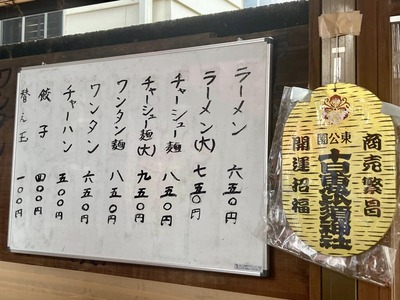 ラーメン 六五〇円
ラーメン(大) 七五〇円
チャーシュー麺 八五〇円
チャーシュー麺(大) 九五〇円
ワンタン麺 八五〇円
ワンタン 六五〇円
チャーハン 五〇〇円
餃子 四〇〇円
替え玉 一〇〇円
商売繁昌
東公園
十日恵比須神社
開運招福